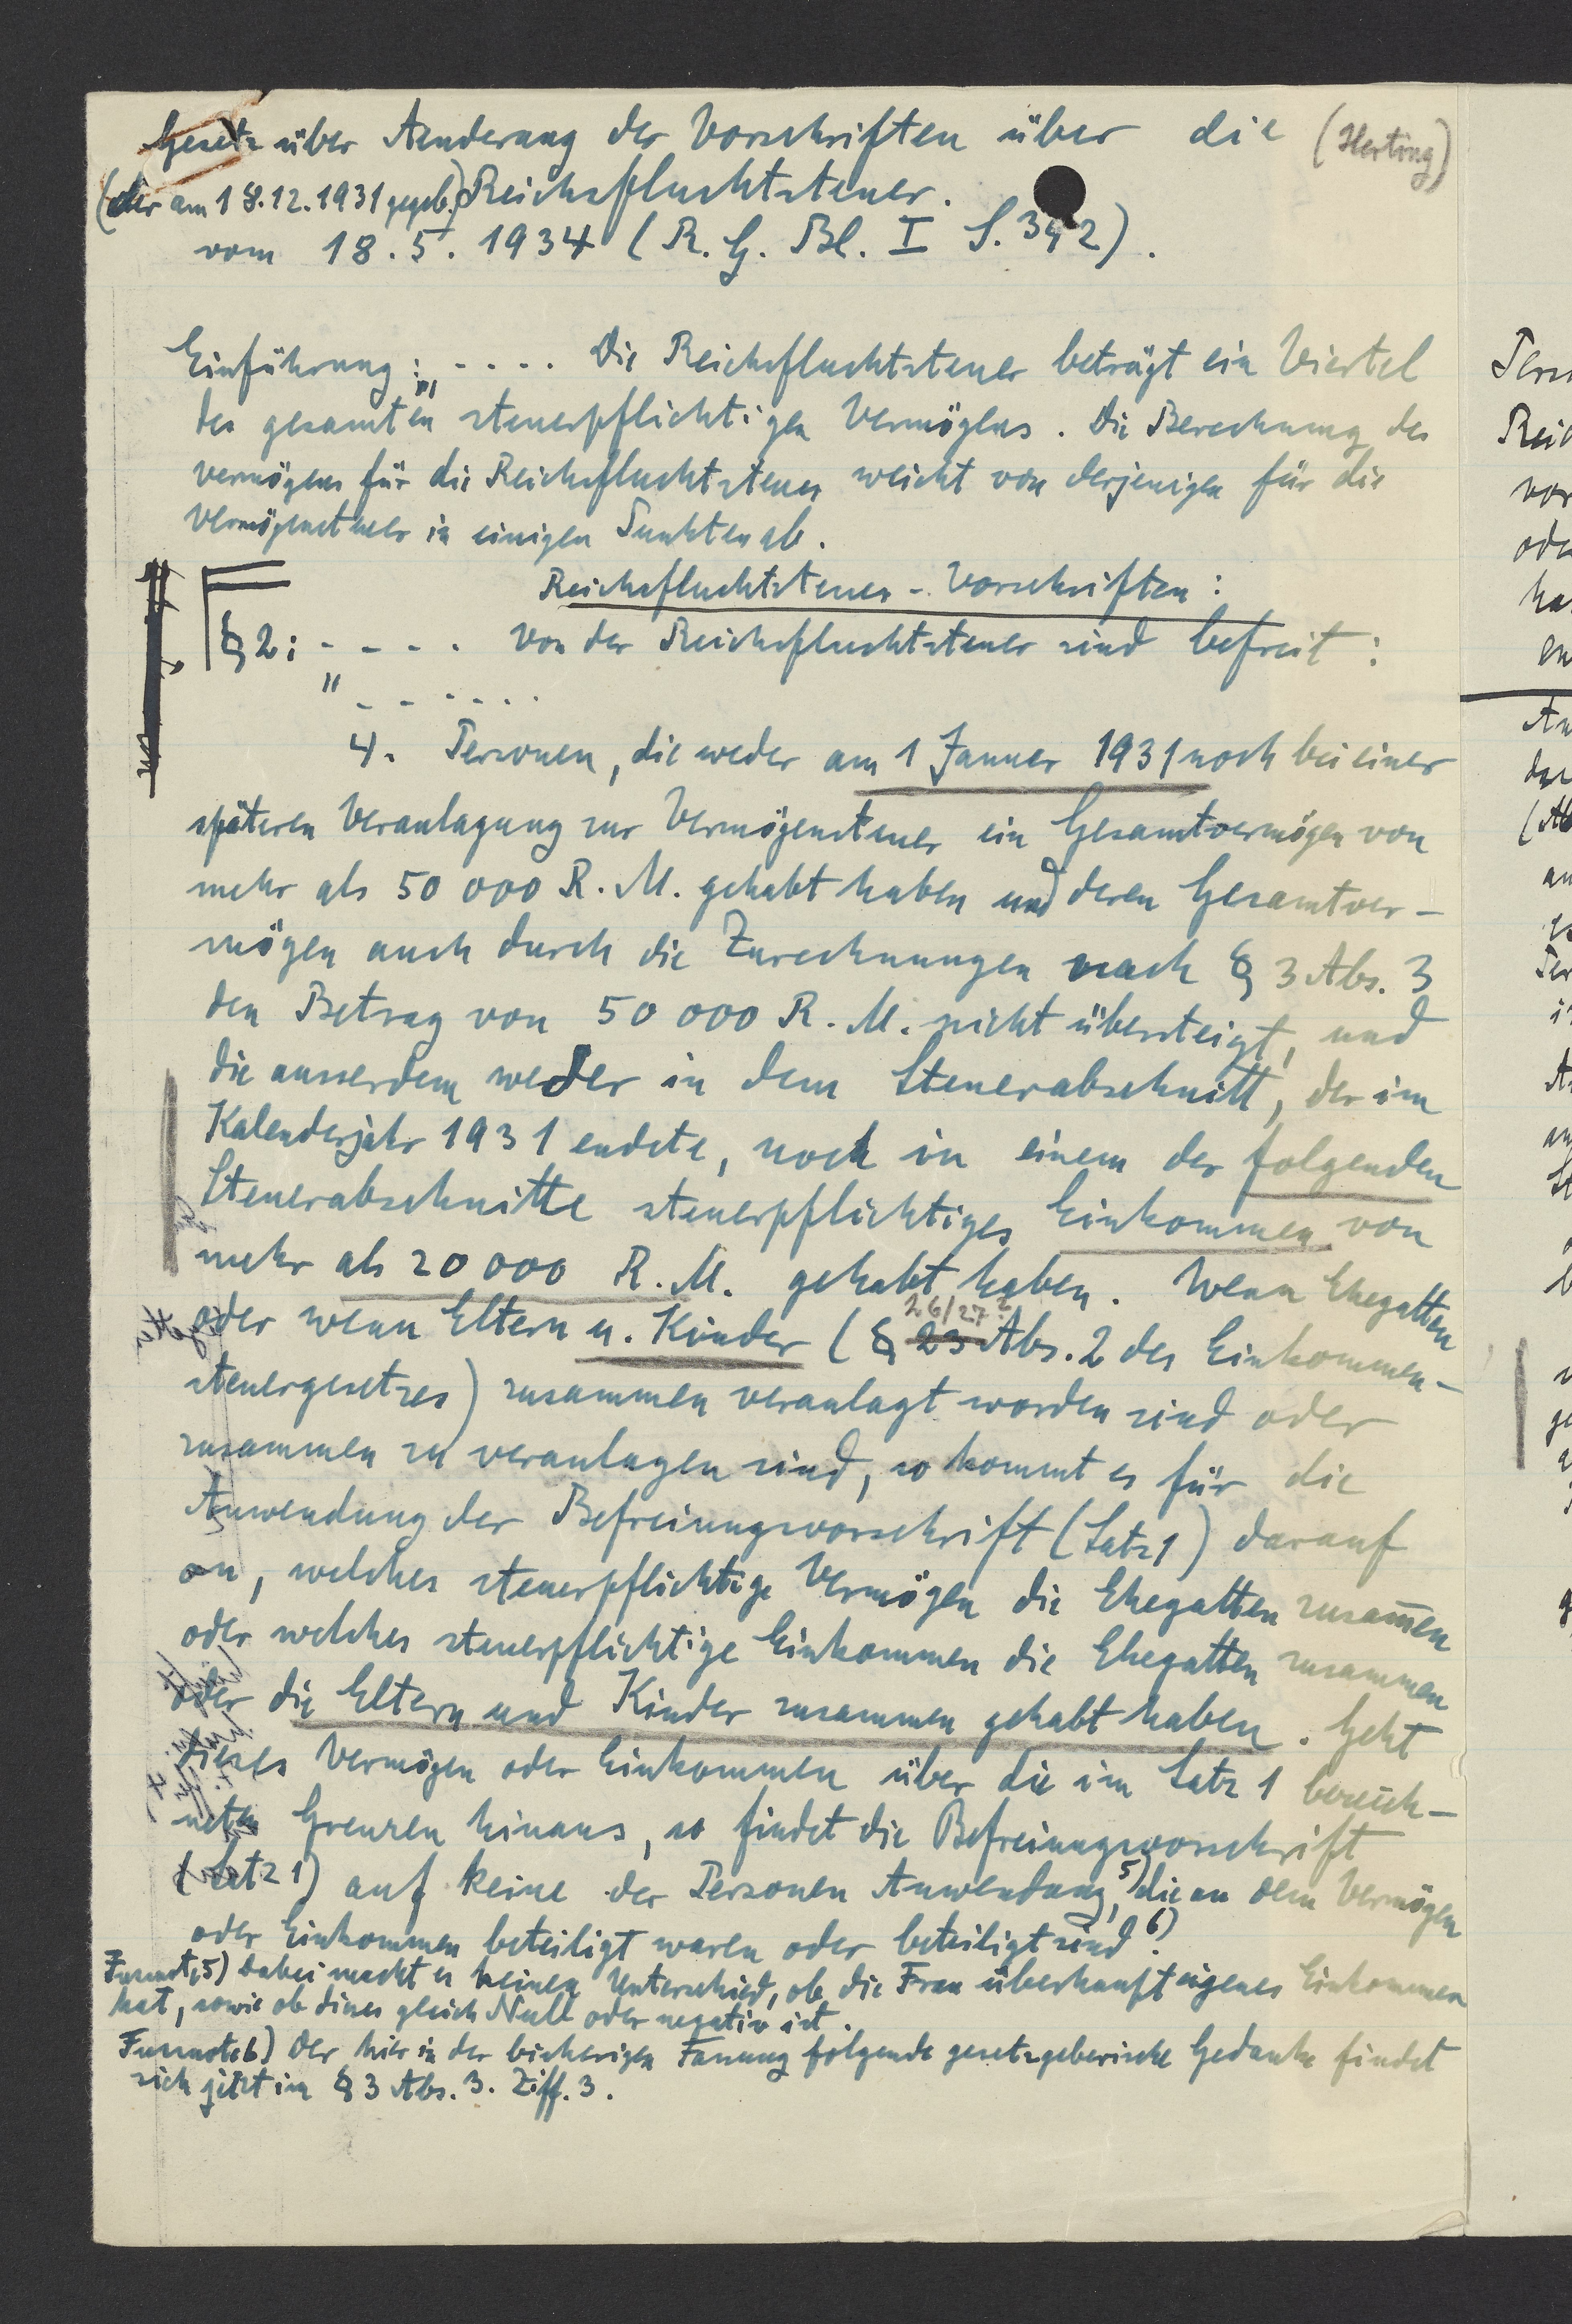 Gesetz über Aenderung der Vorschriften über die (Herting)
(der am 18.12.1931 gegeb.) Reichsfluchtsteuer.
vom 18. 5. 1934 (R. G. Bl. I S. 392).
Einführung: „ . . . . Die Reichsfluchtsteuer beträgt ein Viertel
des gesamten steuerpflichtigen Vermögens. Die Berechnung des
Vermögens für die Reichsfluchtsteuer weicht von derjenigen für die
Vermögensteuer in einigen Punkten ab.
Reichsfluchtsteuer - Vorschriften:
§ 2: - - - - Von der Reichsfluchtsteuer sind befreit:
" - - - - - -
4. Personen, die weder am 1 Januar 1931 noch bei einer
späteren Veranlagung zur Vermögensteuer ein Gesamtvermögen von
mehr als 50 000 R. M. gehabt haben und deren Gesamtver-
mögen auch durch die Zurechnungen nach § 3 Abs. 3
den Betrag von 50 000 R. M. nicht übersteigt, und
die ausserdem weder in dem Steuerabschnitt, der im
Kalenderjahr 1931 endete, noch in einem der folgenden
Steuerabschnitte steuerpflichtiges Einkommen von
mehr als 20 000 R. M. gehabt haben. Wenn Ehegatten
26/27?
oder wenn Eltern u. Kinder (§ 23 Abs. 2 des Einkommen-
steuergesetzes) zusammen veranlagt worden sind oder
zusammen zu veranlagen sind, so kommt es für die
Anwendung der Befreiungsvorschrift (Satz 1) darauf
an, welches steuerpflichtige Vermögen die Ehegatten zusam̅en
oder welches steuerpflichtige Einkommen die Ehegatten zusammen
oder die Eltern und Kinder zusammen gehabt haben. Geht
dieses Vermögen oder Einkommen über die im Satz 1 bezeich-
neten Grenzen hinaus, so findet die Befreiungsvorschrift
(Satz 1) auf keine der Personen Anwendung,5) die an dem Vermögen
oder Einkommen beteiligt waren oder beteiligt sind.6)
Fussnote 5) Dabei macht es keinen Unterschied, ob die Frau überhaupt eigenes Einkommen
hat, sowie ob dieses gleich Null oder negativ ist.
Fussnote 6) Der hier in der bisherigen Fassung folgende gesetzgeberische Gedanke findet
sich jetzt im § 3 Abs. 3. Ziff. 3.